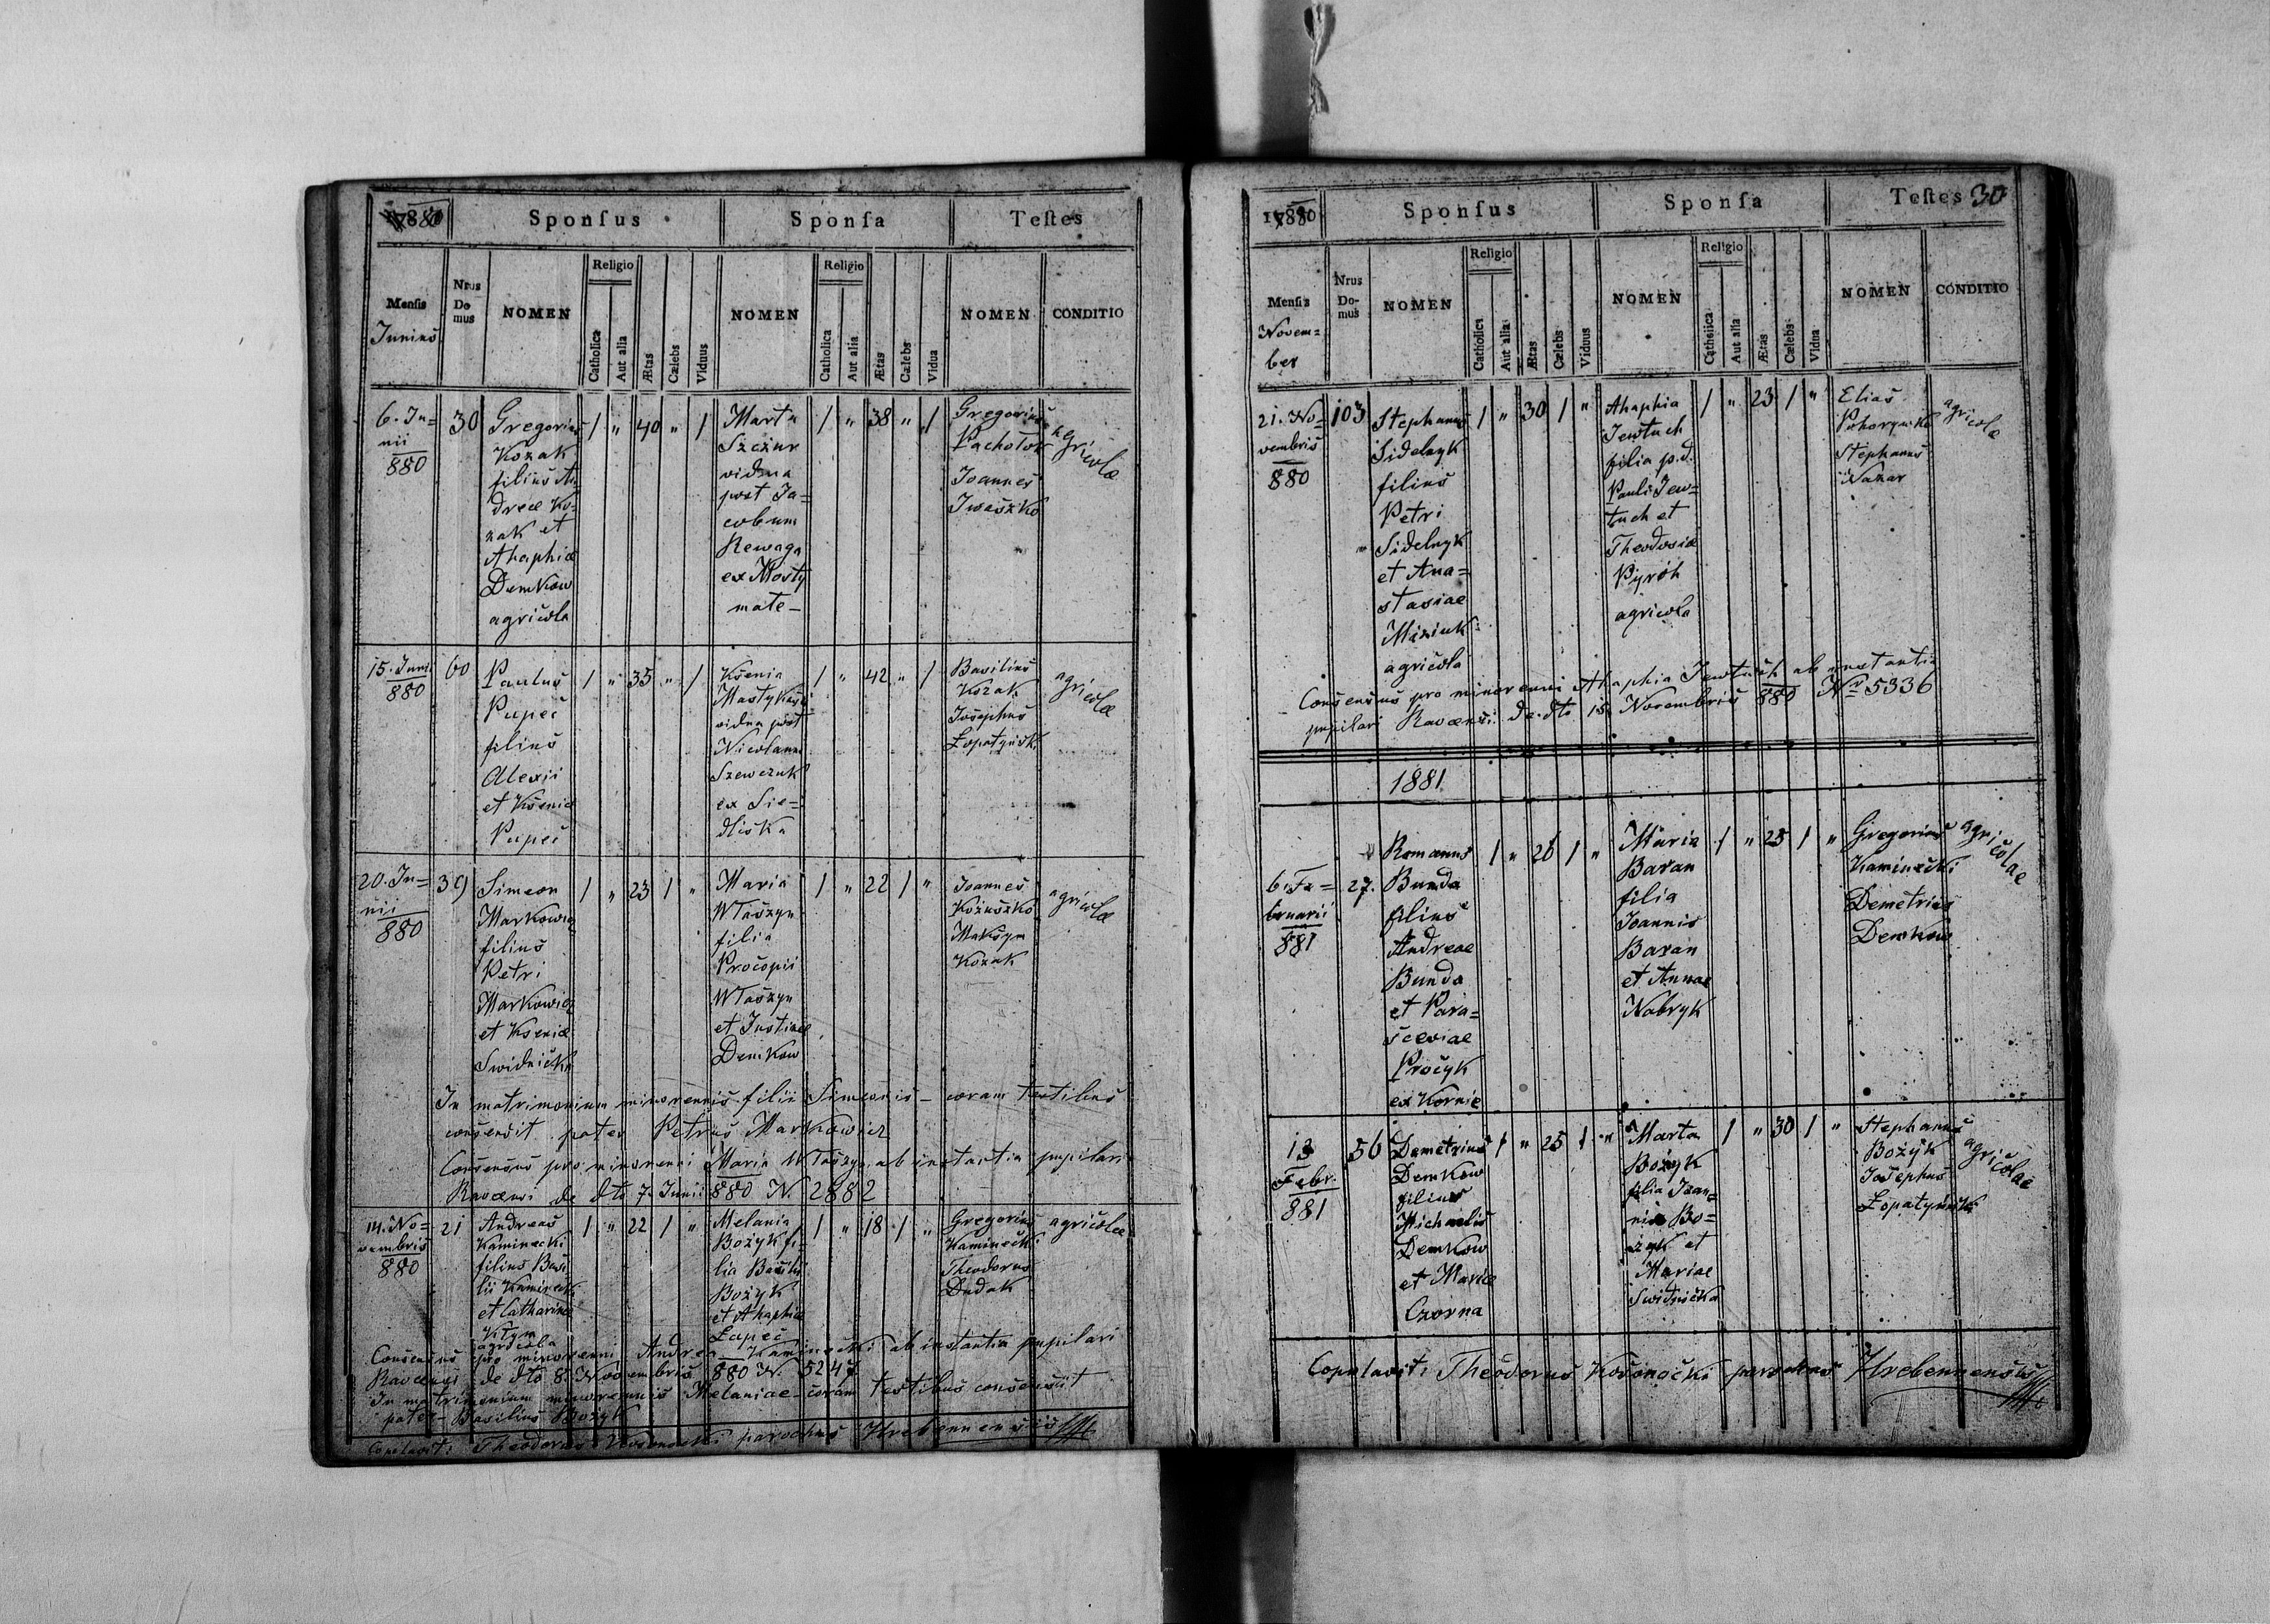 1880
Sponſus
Sponſa
Teſtes
Menſis
Junius
Nrus
Do
mus
NOMEN
Religio
Catholica
Aut alia
Ætas
Cælebs
Viduus
NOMEN
Religio
Catholica
Aut alia
Ætas
Cælebs
Vidua
NOMEN
CONDITIO
6. Ju=
nii
880
30
Gregorius
Kozak
filius An
dreae Ko=
zak et
Ahaphiæ
Demkow
agricola
/ " 40 " /
Marta
Szczur
vidua
post Ja=
cobum
Rewaga
ex Mosty
mate-
/ " 38 " /
Gregorius
Pachołok
Joannes
Iwaszko
agricolæ
15. Junii
880
60
Paulus
Pupeć
filius
Alexii
et Kseniæ
Pupeć
/ " 35 " /
Ksenia
vidua post
Nicolaum
Szewczuk
ex Sie=
dliska
/ " 42 " /
Basilius
Kozak
Josephus
Łopatyński
agricolæ
20. Ju=
nii
880
39
Simeon
Markowicz
filius
Petri
Markowicz
et Kseniæ
Swidnicka
/ " 23 / "
Maria
Właszyn
filia
Procopii
Właszyn
et Justinæ
Demkow
/ " 22 / "
Joannes
Kożuszko
Maksym
Kozak
agricolæ
In matrimonium minorennis filii Simeonis - coram testibus
consensit pater Petrus Markowicz
Consensus pro minorenni Maria Właszyn ab instantia pupilari
Ravensi de dto 7. Junii 880 N. 2882
14. No=
vembris
880
21
Andreas
Kaminecki
filius Basi
lii Kaminecki
et Catharinæ
Kłym
agricola
/ " 22 / "
Melania
Bożyk fi-
lia Basilii
Bożyk
et Ahaphiæ
Łapeć
/ " 18 / "
Gregorius
Kaminecki
Theodorus
Dudak
agricolæ
Consensus pro minorenni Andrea Kaminecki ab instantia pupilari
Ravensi de dto 8. Novembris 880 N. 5247
In matrimonium minorennis Melaniae coram testibus consensit
pater Basilius Bożyk
Copulavit: Theodorus Kosonocki parochus Hrebennensis
1880
Sponſus
Sponſa
Teſtes 30
Menſis
Novem=
ber
Nrus
Do-
mus
NOMEN
Religio
Catholica
Aut alia
Ætas
Cælebs
Viduus
NOMEN
Religio
Catholica
Aut alia
Ætas
Cælebs
Vidua
NOMEN
CONDITIO
21. No=
vembris
880
103
Stephanus
Sidelnyk
filius
Petri
Sidelnyk
et Ana=
stasiae
agricola
/ " 30 / "
Ahaphia
Jewtuch
filia p.d.
Pauli Jew=
tuch et
Theodosiæ
Pyróh
agricola
/ " 23 / "
Elias
Stephanus
Nazar
agricolæ
Consensus pro minorenni Ahaphia Jewtuch ab instantia
pupilari Ravensi de dto 15 Novembris 880 Nr 5336
1881
6. Fe=
bruarii
881
27.
Romanus
Bunda
filius
Andreae
Bunda
et Para=
sceviae
Procyk
ex Kornie
/ " 26 / "
Maria
Baran
filia
Joannis
Baran
et Annae
Nobryk
/ " 25 / "
Gregorius
Kaminecki
Demetrius
Demkow
agricolae
13
Febr.
881
56
Demetrius
Demkow
filius
Michaelis
Demkow
et Mariæ
Czorna
/ " 25 / "
Marta
Bożyk
filia Joan=
nis Bo=
żyk et
Mariae
Swidnicka
/ " 30 / "
Stephanus
Bożyk
Josephus
Łopatyński
agricolae
Copulavit: Theodorus Kosonocki parochus Hrebennensis